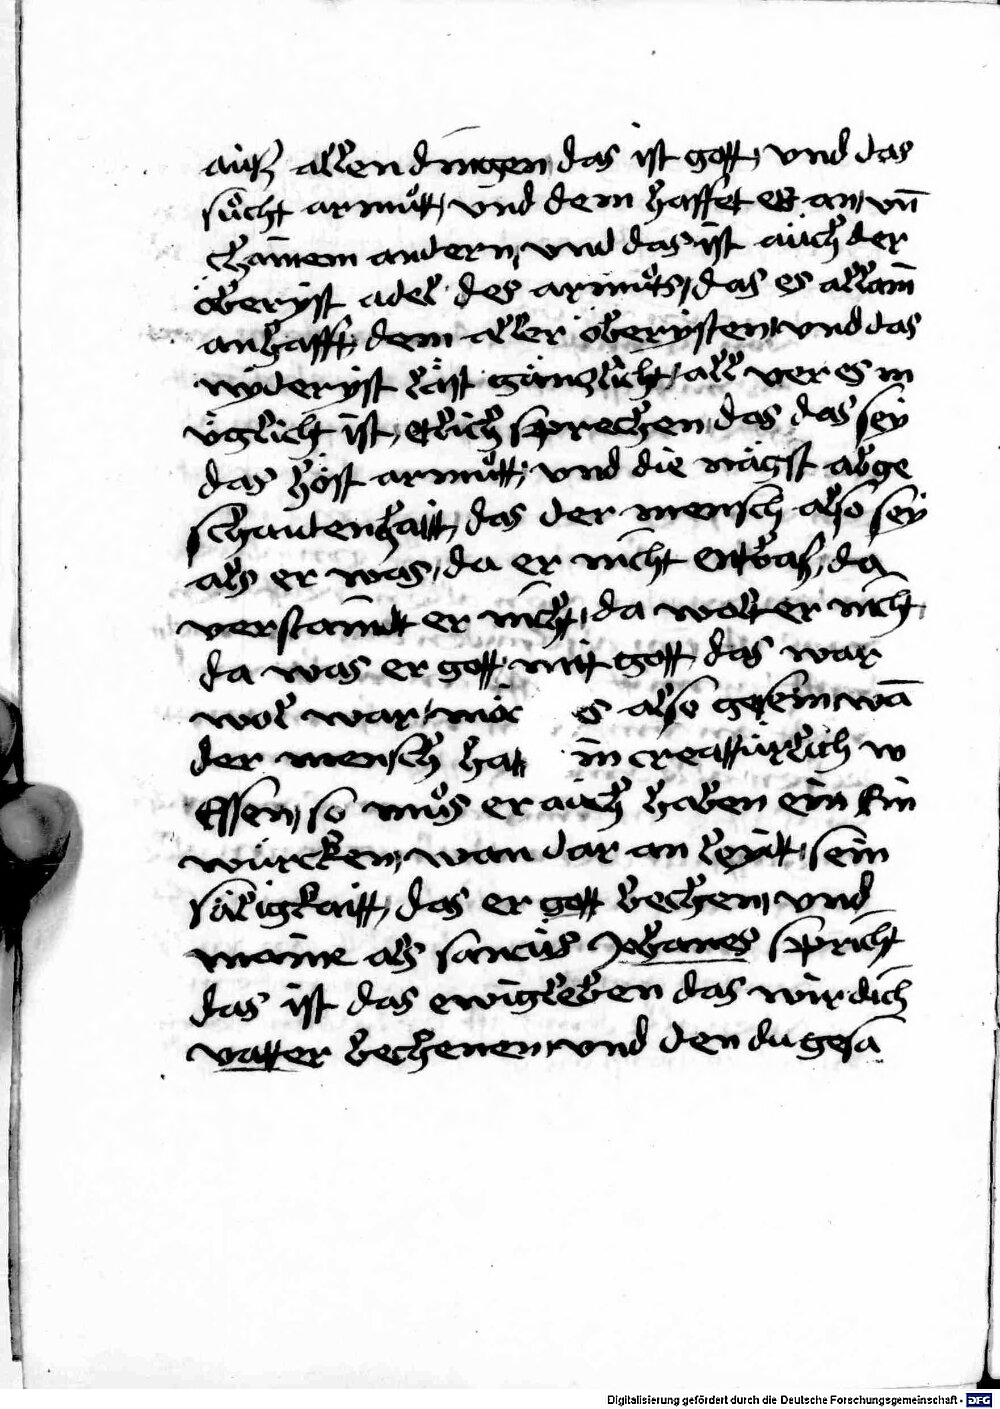 auß allen dingen, das ist gott, vnd das
sůcht armůtt, vnd dem hafftet er an, vn̄
chainem andern, vnd das ist aüch der
öberÿst adel des armůts, das es allain
anhafft, dem aller öberÿsten, vnd das
nÿderÿst läst gäntzlicht, all ver es m
üglicht ist, etlich sprechen, das das seÿ
das höst armůtt, vnd die nägst abge
schaidenhaitt, das der mensch also seÿ
als er was, da er nicht entwaß, da
verstaindt er nicht, da wolt er nicht,
da was er gott mit gott das war
wol war, möc es also gesein, wā
der mensch hat in creattürlich w
Essen, so můs er aüch haben ein Ein
würcken, wan dar an leyitt, sein
säligkaitt, das er gott bechenn, vnd
maine als sanctüs Johanes spricht
das ist das ewigleben das wir dich
vatter bechenen, vnd den du gesa
Digitalisierung gefördert durch die Deutsche Forschungsgemeinschaft - DFG